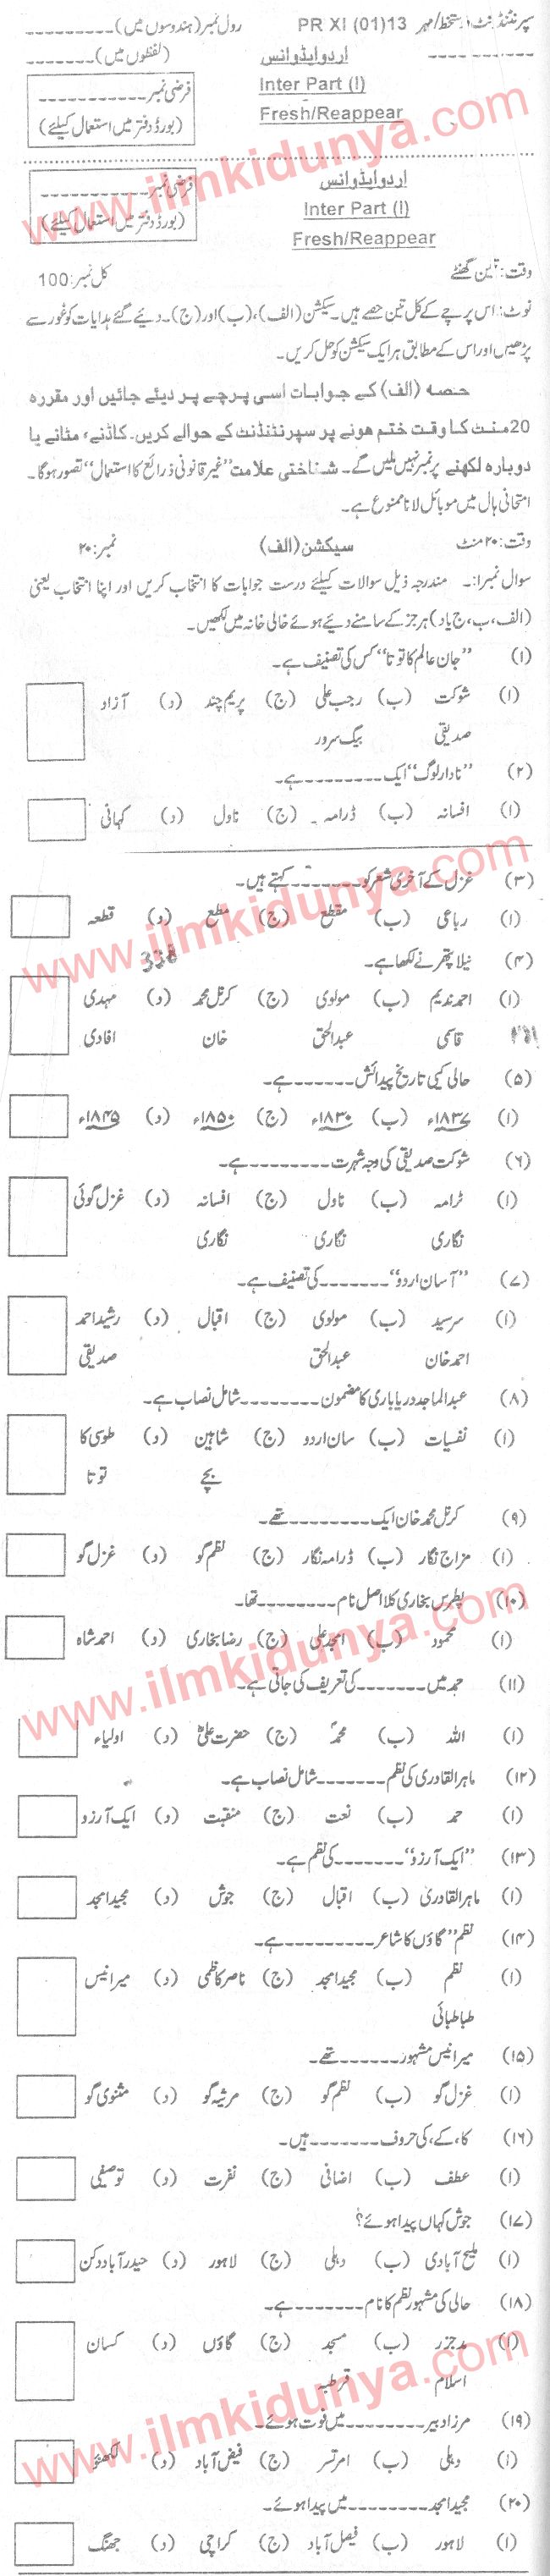 سپرنٹنڈنٹ دستخط/مہر PR XI (01)13 رول نمبر (ہندسوں میں)---------
اردو ایڈوانس (لفظوں میں)-------
Inter Part (I)
Fresh/Reappear
فرضی نمبر-----------
(بورڈ دفتر میں استعمال کیلئے)
اردو ایڈوانس
Inter Part (I)
Fresh/Reappear
فرضی نمبر-----------
(بورڈ دفتر میں استعمال کیلئے)
وقت: تین گھنٹے کل نمبر: 100
نوٹ: اس پرچے کے کل تین حصے ہیں۔ سیکشن (الف)، (ب) اور (ج)۔ دیئے گئے ہدایات کو غور سے
پڑھیں اور اس کے مطابق ہر ایک سیکشن کو حل کریں۔
حصہ (الف) کے جوابات اسی پرچے پر دیئے جائیں اور مقررہ
20 منٹ کا وقت ختم ہونے پر سپرنٹنڈنٹ کے حوالے کریں۔ کاٹنے، مٹانے یا
دوبارہ لکھنے پر نمبر نہیں ملیں گے۔ شناختی علامت "غیر قانونی ذرائع کا استعمال" تصور ہوگا۔
امتحانی ہال میں موبائل لانا ممنوع ہے۔
وقت: ۲۰ منٹ سیکشن (الف) نمبر: ۲۰
سوال نمبر۱:۔ مندرجہ ذیل سوالات کیلئے درست جوابات کا انتخاب کریں اور اپنا انتخاب یعنی
(الف، ب، ج یا د) ہر جز کے سامنے دیئے ہوئے خالی خانہ میں لکھیں۔
(۱) "جان عالم کا توتا" کس کی تصنیف ہے۔
(ا) شوکت صدیقی (ب) رجب علی بیگ سرور (ج) پریم چند (د) آزاد
(۲) "نادار لوگ" ایک---------ہے۔
(ا) افسانہ (ب) ڈرامہ (ج) ناول (د) کہانی
(۳) غزل کے آخری شعر کو--------کہتے ہیں۔
(ا) رباعی (ب) مقطع (ج) مطلع (د) قطعہ
(۴) نیلا پتھر نے لکھا ہے۔
(ا) احمد ندیم قاسمی (ب) مولوی عبدالحق (ج) کرنل محمد خان (د) مہدی افادی
(۵) حالی کیی تاریخ پیدائش-------ہے۔
(ا) ۱۸۳۷ء (ب) ۱۸۳۰ء (ج) ۱۸۵۰ء (د) ۱۸۴۵ء
(۶) شوکت صدیقی کی وجہ شہرت---------ہے۔
(ا) ڈرامہ نگاری (ب) ناول نگاری (ج) افسانہ نگاری (د) غزل گوئی
(۷) "آسان اردو"-------کی تصنیف ہے۔
(ا) سرسید احمد خان (ب) مولوی عبدالحق (ج) اقبال (د) رشید احمد صدیقی
(۸) عبدالماجد دریاباری کا مضمون---------شامل نصاب ہے۔
(ا) نفسیات (ب) سان اردو (ج) شاہین بچے (د) طوسی کا توتا
(۹) کرنل محمد خان ایک---------تھے۔
(ا) مزاح نگار (ب) ڈرامہ نگار (ج) نظم گو (د) غزل گو
(۱۰) پطرس بخاری کلا اصل نام---------تھا۔
(ا) محمود (ب) امجد علی (ج) رضا بخاری (د) احمد شاہ
(۱۱) حمد میں-------کی تعریف کی جاتی ہے۔
(ا) اللہ (ب) محمدؐ (ج) حضرت علیؓ (د) اولیاء
(۱۲) ماہر القادری کی نظم-------شامل نصاب ہے۔
(ا) حمد (ب) نعت (ج) منقبت (د) ایک آرزو
(۱۳) "ایک آرزو"-------کی نظم ہے۔
(ا) ماہر القادری (ب) اقبال (ج) جوش (د) مجید امجد
(۱۴) نظم "گاؤں کا شاعر---------ہے۔
(ا) نظم طباطبائی (ب) مجید امجد (ج) ناصر کاظمی (د) میر انیس
(۱۵) میر انیس مشہور-------تھے۔
(ا) غزل گو (ب) نظم گو (ج) مرثیہ گو (د) مثنوی گو
(۱۶) کا، کے، کی حروف-------ہیں۔
(ا) عطف (ب) اضافی (ج) نفرت (د) توصیفی
(۱۷) جوش کہاں پیدا ہوئے؟
(ا) ملیح آبادی (ب) دہلی (ج) لاہور (د) حیدر آباد دکن
(۱۸) حالی کی مشہور نظم کا نام---------ہے۔
(ا) مدجزر اسلام (ب) مسجد قرطبہ (ج) گاؤں (د) کسان
(۱۹) مرزا دبیر---------میں فوت ہوئے۔
(ا) دہلی (ب) امرتسر (ج) فیض آباد (د) لکھنؤ
(۲۰) مجید امجد---------میں پیدا ہوئے۔
(ا) لاہور (ب) فیصل آباد (ج) کراچی (د) جھنگ
www.ilmkidunya.com
www.ilmkidunya.com
www.ilmkidunya.com
www.ilmkidunya.com